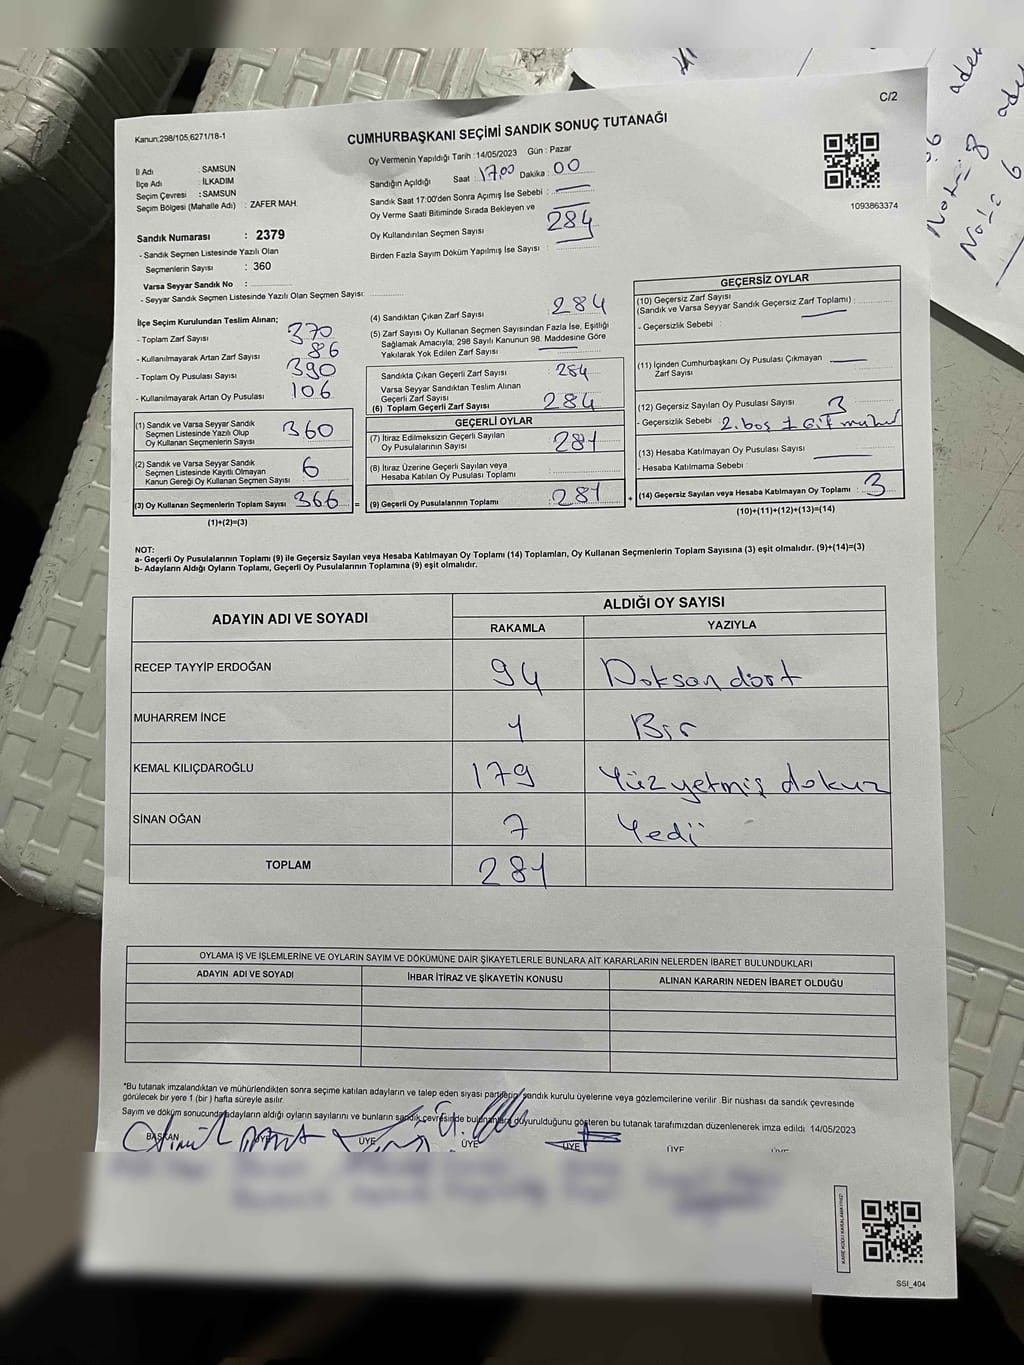 C/2
Kanun:298/105,6271/18-1
CUMHURBAŞKANI SEÇİMİ SANDIK SONUÇ TUTANAĞI
İl Adı : SAMSUN
İlçe Adı : İLKADIM
Seçim Çevresi : SAMSUN
Seçim Bölgesi (Mahalle Adı) : ZAFER MAH.
Oy Vermenin Yapıldığı Tarih : 14/05/2023 Gün : Pazar
Sandığın Açıldığı Saat : 17.00 Dakika : 00
Sandık Saat 17:00'den Sonra Açımış İse Sebebi :
Oy Verme Saati Bitiminde Sırada Bekleyen ve
Oy Kullandırılan Seçmen Sayısı 284
Birden Fazla Sayım Döküm Yapılmış İse Sayısı :
1093863374
Sandık Numarası : 2379
- Sandık Seçmen Listesinde Yazılı Olan
Seçmenlerin Sayısı : 360
Varsa Seyyar Sandık No :
- Seyyar Sandık Seçmen Listesinde Yazılı Olan Seçmen Sayısı:
İlçe Seçim Kurulundan Teslim Alınan;
- Toplam Zarf Sayısı 370
- Kullanılmayarak Artan Zarf Sayısı 86
- Toplam Oy Pusulası Sayısı 390
- Kullanılmayarak Artan Oy Pusulası 106
(1) Sandık ve Varsa Seyyar Sandık
Seçmen Listesinde Yazılı Olup
Oy Kullanan Seçmenlerin Sayısı 360
(2) Sandık ve Varsa Seyyar Sandık
Seçmen Listesinde Kayıtlı Olmayan
Kanun Gereği Oy Kullanan Seçmen Sayısı 6
(3) Oy Kullanan Seçmenlerin Toplam Sayısı 366 =
(1)+(2)=(3)
(4) Sandıktan Çıkan Zarf Sayısı 284
(5) Zarf Sayısı Oy Kullanan Seçmen Sayısından Fazla İse, Eşitliği
Sağlamak Amacıyla; 298 Sayılı Kanunun 98. Maddesine Göre
Yakılarak Yok Edilen Zarf Sayısı
Sandıkta Çıkan Geçerli Zarf Sayısı : 284
Varsa Seyyar Sandıktan Teslim Alınan
Geçerli Zarf Sayısı
(6) Toplam Geçerli Zarf Sayısı 284
GEÇERLİ OYLAR
(7) İtiraz Edilmeksizin Geçerli Sayılan
Oy Pusulalarının Sayısı 281
(8) İtiraz Üzerine Geçerli Sayılan veya
Hesaba Katılan Oy Pusulası Toplamı
(9) Geçerli Oy Pusulalarının Toplamı 281 +
GEÇERSİZ OYLAR
(10) Geçersiz Zarf Sayısı
(Sandık ve Varsa Seyyar Sandık Geçersiz Zarf Toplamı) :
- Geçersizlik Sebebi :
(11) İçinden Cumhurbaşkanı Oy Pusulası Çıkmayan
Zarf Sayısı
(12) Geçersiz Sayılan Oy Pusulası Sayısı 3
- Geçersizlik Sebebi 2.boş 1 çift mühür
(13) Hesaba Katılmayan Oy Pusulası Sayısı
- Hesaba Katılmama Sebebi :
(14) Geçersiz Sayılan veya Hesaba Katılmayan Oy Toplamı : 3
(10)+(11)+(12)+(13)=(14)
NOT:
a- Geçerli Oy Pusulalarının Toplamı (9) ile Geçersiz Sayılan veya Hesaba Katılmayan Oy Toplamı (14) Toplamları, Oy Kullanan Seçmenlerin Toplam Sayısına (3) eşit olmalıdır. (9)+(14)=(3)
b- Adayların Aldığı Oyların Toplamı, Geçerli Oy Pusulalarının Toplamına (9) eşit olmalıdır.
ADAYIN ADI VE SOYADI
ALDIĞI OY SAYISI
RAKAMLA YAZIYLA
RECEP TAYYİP ERDOĞAN 94 Doksan dört
MUHARREM İNCE 1 Bir
KEMAL KILIÇDAROĞLU 179 Yüz yetmiş dokuz
SİNAN OĞAN 7 Yedi
TOPLAM 281
OYLAMA İŞ VE İŞLEMLERİNE VE OYLARIN SAYIM VE DÖKÜMÜNE DAİR ŞİKAYETLERLE BUNLARA AİT KARARLARIN NELERDEN İBARET BULUNDUKLARI
ADAYIN ADI VE SOYADI İHBAR İTİRAZ VE ŞİKAYETİN KONUSU ALINAN KARARIN NEDEN İBARET OLDUĞU
*Bu tutanak imzalandıktan ve mühürlendikten sonra seçime katılan adayların ve talep eden siyasi partilerin sandık kurulu üyelerine veya gözlemcilerine verilir .Bir nüshası da sandık çevresinde
görülecek bir yere 1 (bir ) hafta süreyle asılır.
Sayım ve döküm sonucunda adayların aldığı oyların sayılarını ve bunların sandık çevresinde bulunanlara duyurulduğunu gösteren bu tutanak tarafımızdan düzenlenerek imza edildi. 14/05/2023
BAŞKAN ÜYE ÜYE ÜYE ÜYE ÜYE
KARE KODU KARALAMAYINIZ!
SGI_404
aden
Note 8
Note 6